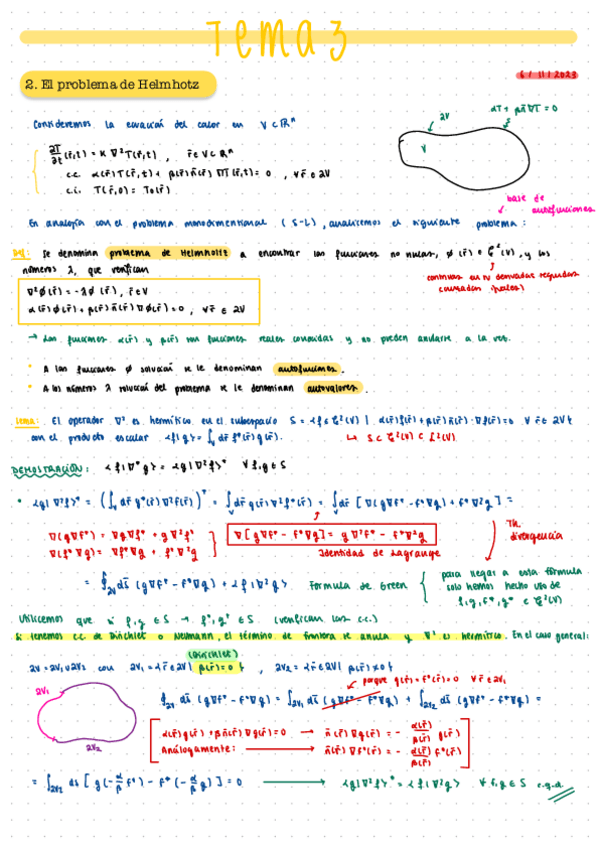 Tema 3
2. El problema de Helmhotz
6 / 11 / 2023
Consideremos la ecuación del calor en V ⊂ ℝⁿ
∂V
αT + βn̄∇T = 0
V
∂T/∂t (r̄,t) = κ ∇²T(r̄,t) , r̄ ∈ V ⊂ ℝⁿ
c.c. α(r̄)T(r̄,t) + β(r̄)n̄(r̄)∇T(r̄,t) = 0 , ∀r̄ ∈ ∂V
c.i. T(r̄,0) = T₀(r̄)
base de autofunciones
En analogía con el problema monodimensional (S-L), analicemos el siguiente problema:
Def: Se denomina problema de Helmholtz a encontrar las funciones no nulas, ϕ(r̄) ∈ C²(V), y los
números λ, que verifican
continuas en sus derivadas segundas
∇²ϕ(r̄) = -λϕ(r̄), r̄ ∈ V
α(r̄)ϕ(r̄) + β(r̄)n̄(r̄)∇ϕ(r̄) = 0 , ∀r̄ ∈ ∂V
→ Las funciones α(r̄) y β(r̄) son funciones reales conocidas y no pueden anularse a la vez.
• A las funciones ϕ solución se le denominan autofunciones.
• A los números λ solución del problema se le denominan autovalores.
Lema: El operador ∇² es hermítico en el subespacio S = {f ∈ C²(V) | α(r̄)f(r̄) + β(r̄)n̄(r̄)·∇f(r̄) = 0 ∀r̄ ∈ ∂V}
con el producto escalar <f|g> = ∫ᵥ dr̄ f*(r̄)g(r̄).
↳ S ⊂ C²(V) ⊂ L²(V)
DEMOSTRACIÓN: <f|∇²g> = <g|∇²f>* ∀f,g ∈ S
• <g|∇²f>* = (∫ᵥ dr̄ g*(r̄)∇²f(r̄))* = ∫ dr̄ g(r̄)∇²f*(r̄) = ∫ dr̄ [∇(g∇f* - f*∇g) + f*∇²g] =
∇(g∇f*) = ∇g∇f* + g∇²f*
∇(f*∇g) = ∇f*∇g + f*∇²g
∇[g∇f* - f*∇g] = g∇²f* - f*∇²g
Identidad de Lagrange
Th. divergencia
= ∮∂V ds̄ (g∇f* - f*∇g) + <f|∇²g>
Fórmula de Green
para llegar a esta fórmula
solo hemos hecho uso de
f, g, f*, g* ∈ C²(V)
Utilicemos que si f,g ∈ S → f*,g* ∈ S (verifican las c.c.)
Si tenemos c.c. de Dirichlet o Neumann, el término de frontera se anula y ∇² es hermítico. En el caso general:
(Dirichlet)
∂V = ∂V₁ ∪ ∂V₂ con ∂V₁ = {r̄ ∈ ∂V | β(r̄) = 0} , ∂V₂ = {r̄ ∈ ∂V | β(r̄) ≠ 0}
porque g(r̄) = f*(r̄) = 0 ∀r̄ ∈ ∂V₁
∂V₁
∂V₂
∮∂V ds̄ (g∇f* - f*∇g) = ∫∂V₁ ds̄ (g∇f* - f*∇g) + ∫∂V₂ ds̄ (g∇f* - f*∇g) =
α(r̄)g(r̄) + βn̄(r̄)∇g(r̄) = 0 → n̄(r̄)∇g(r̄) = - α(r̄)/β(r̄) g(r̄)
Análogamente: → n̄(r̄)∇f*(r̄) = - α(r̄)/β(r̄) f*(r̄)
= ∫∂V₂ ds [g(-α/β f*) - f*(-α/β g)] = 0 → <g|∇²f>* = <f|∇²g> ∀f,g ∈ S c.q.d.